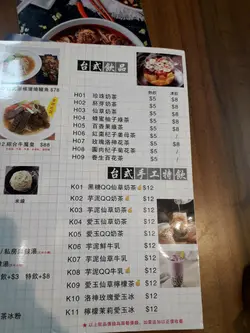 台式飲品
熱飲 凍飲
H01 珍珠奶茶 $5 $8
H02 厨芽奶茶 $5 $8
H03 仙草奶茶 $5 $8
H04 蜂蜜柚子綠茶 $5 $8
H05 百香果綠茶 $5 $8
H06 紅棗杞子姜母茶 $5 /
H07 玫瑰洛神花茶 $5 $8
H08 圓肉杞子菊花茶 $5 /
H09 養生百花茶 $5 /
台式手工特飲
K01 黑糖QQ仙草奶茶 $12
K02 芋泥QQ奶茶 $12
K03 芋泥仙草奶茶 $12
K04 愛玉仙草奶茶 $12
K05 愛玉QQ奶茶 $12
K06 芋泥鮮牛乳 $12
K07 芋泥仙草牛乳 $12
K08 芋泥QQ牛乳 $12
K09 愛玉仙草檸檬茶 $12
K10 洛神玫瑰愛玉冰 $12
K11 檸檬茉莉愛玉冰 $12
$78
綜合牛腩煲 $88
水餃
+$3 特飲+$8
茶冰粉